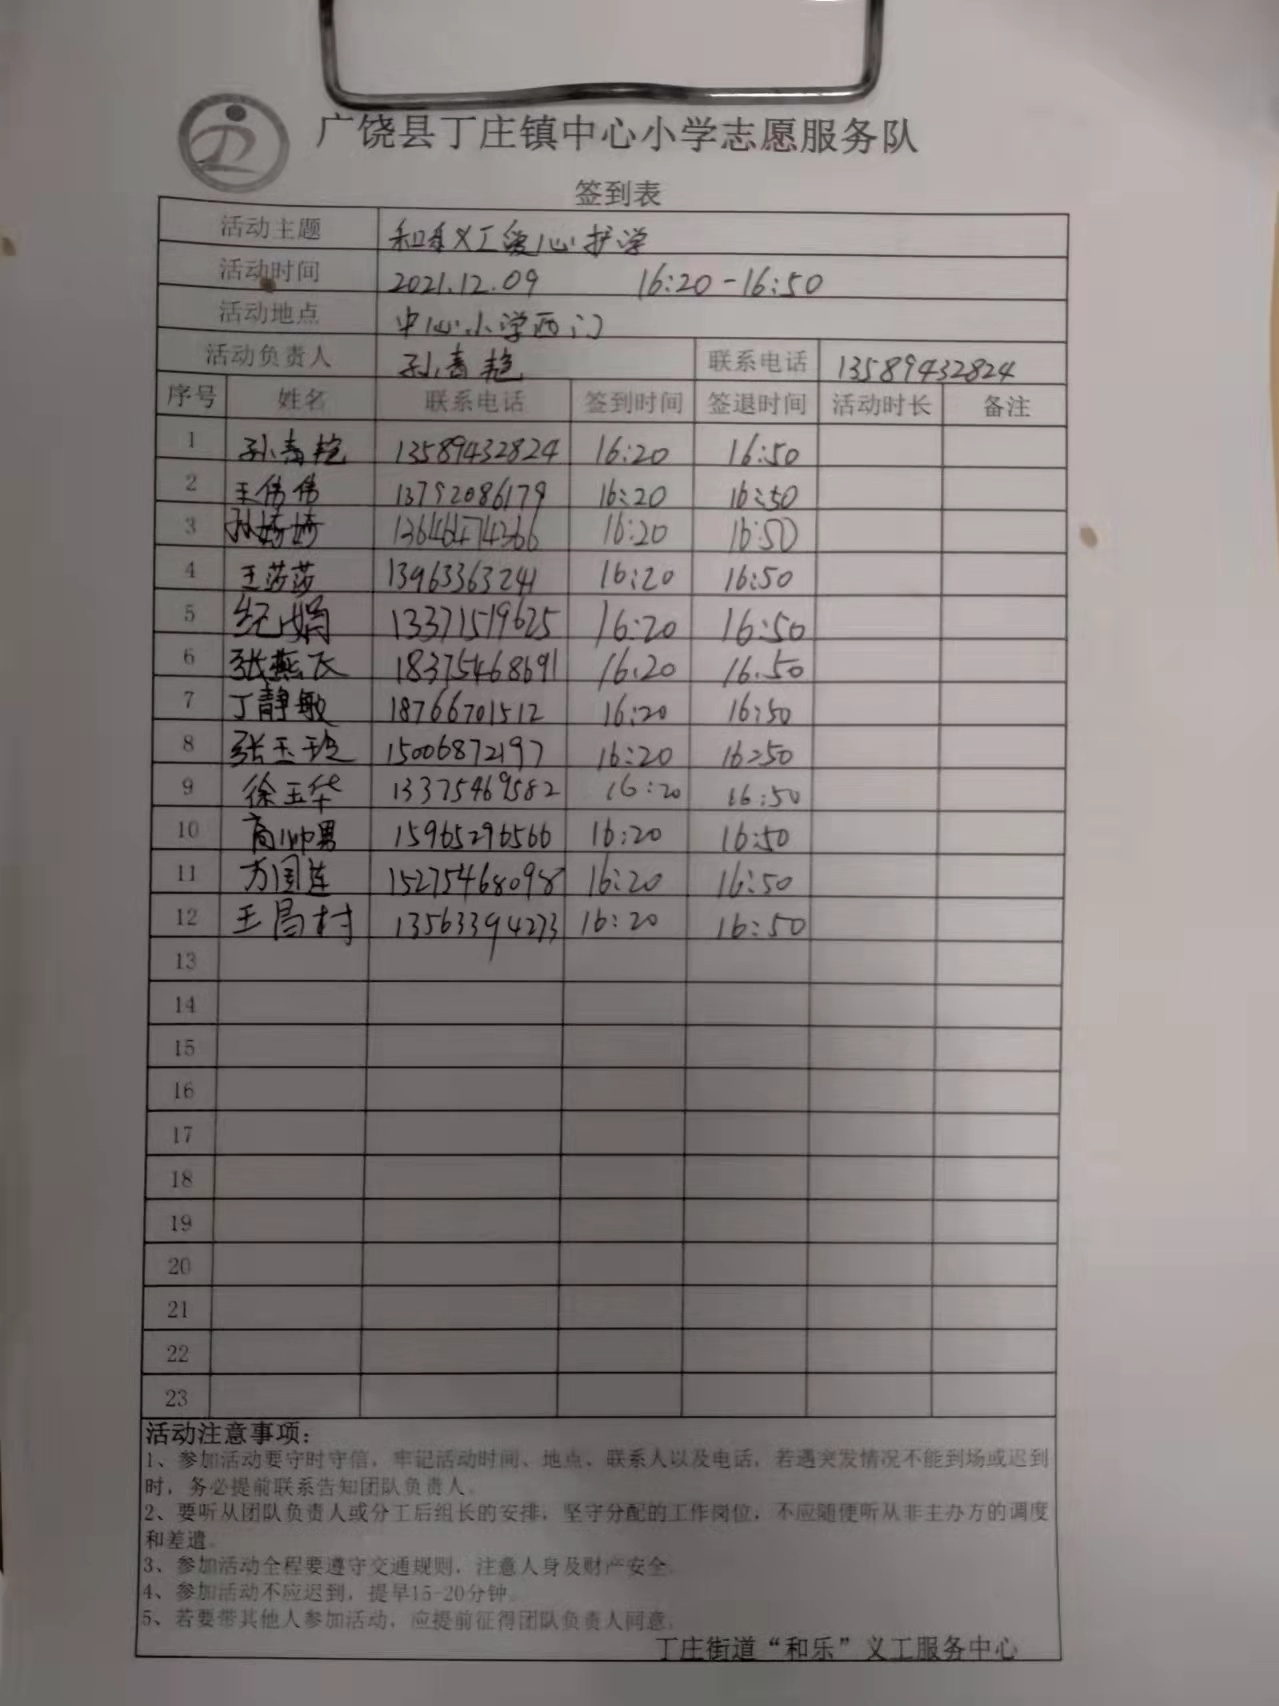 广饶县丁庄镇中心小学志愿服务队
签到表
活动主题 和乐义工爱心护学
活动时间 2021.12.09 16:20-16:50
活动地点 中心小学西门
活动负责人 孙青艳 联系电话 13589432824
序号 姓名 联系电话 签到时间 签退时间 活动时长 备注
1 孙青艳 13589432824 16:20 16:50
2 王伟伟 13792086179 16:20 16:50
3 孙婷婷 13646474366 16:20 16:50
4 王莎莎 13963363241 16:20 16:50
5 纪娟 13371519625 16:20 16:50
6 张燕飞 18375468691 16.20 16.50
7 丁静敏 18766701512 16:20 16:50
8 张玉玲 15006872197 16:20 16:50
9 徐玉华 13375469582 16:20 16:50
10 高帅男 15965296566 16:20 16:50
11 国莲 15275468098 16:20 16:50
12 王昌村 13563394273 16:20 16:50
13
14
15
16
17
18
19
20
21
22
23
活动注意事项：
1、参加活动要守时守信，牢记活动时间、地点、联系人以及电话，若遇突发情况不能到场或迟到
时，务必提前联系告知团队负责人。
2、要听从团队负责人或分工后组长的安排，坚守分配的工作岗位，不应随便听从非主办方的调度
和差遣。
3、参加活动全程要遵守交通规则，注意人身及财产安全。
4、参加活动不应迟到，提早15-20分钟。
5、若要带其他人参加活动，应提前征得团队负责人同意。
丁庄街道“和乐”义工服务中心